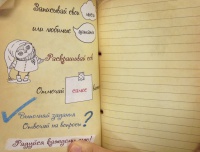 Записывай свои
или любимое
Развешивай
Отмечай самое
Выполняй задания
Отвечай на вопросы ?
Радуйся каждому дню!